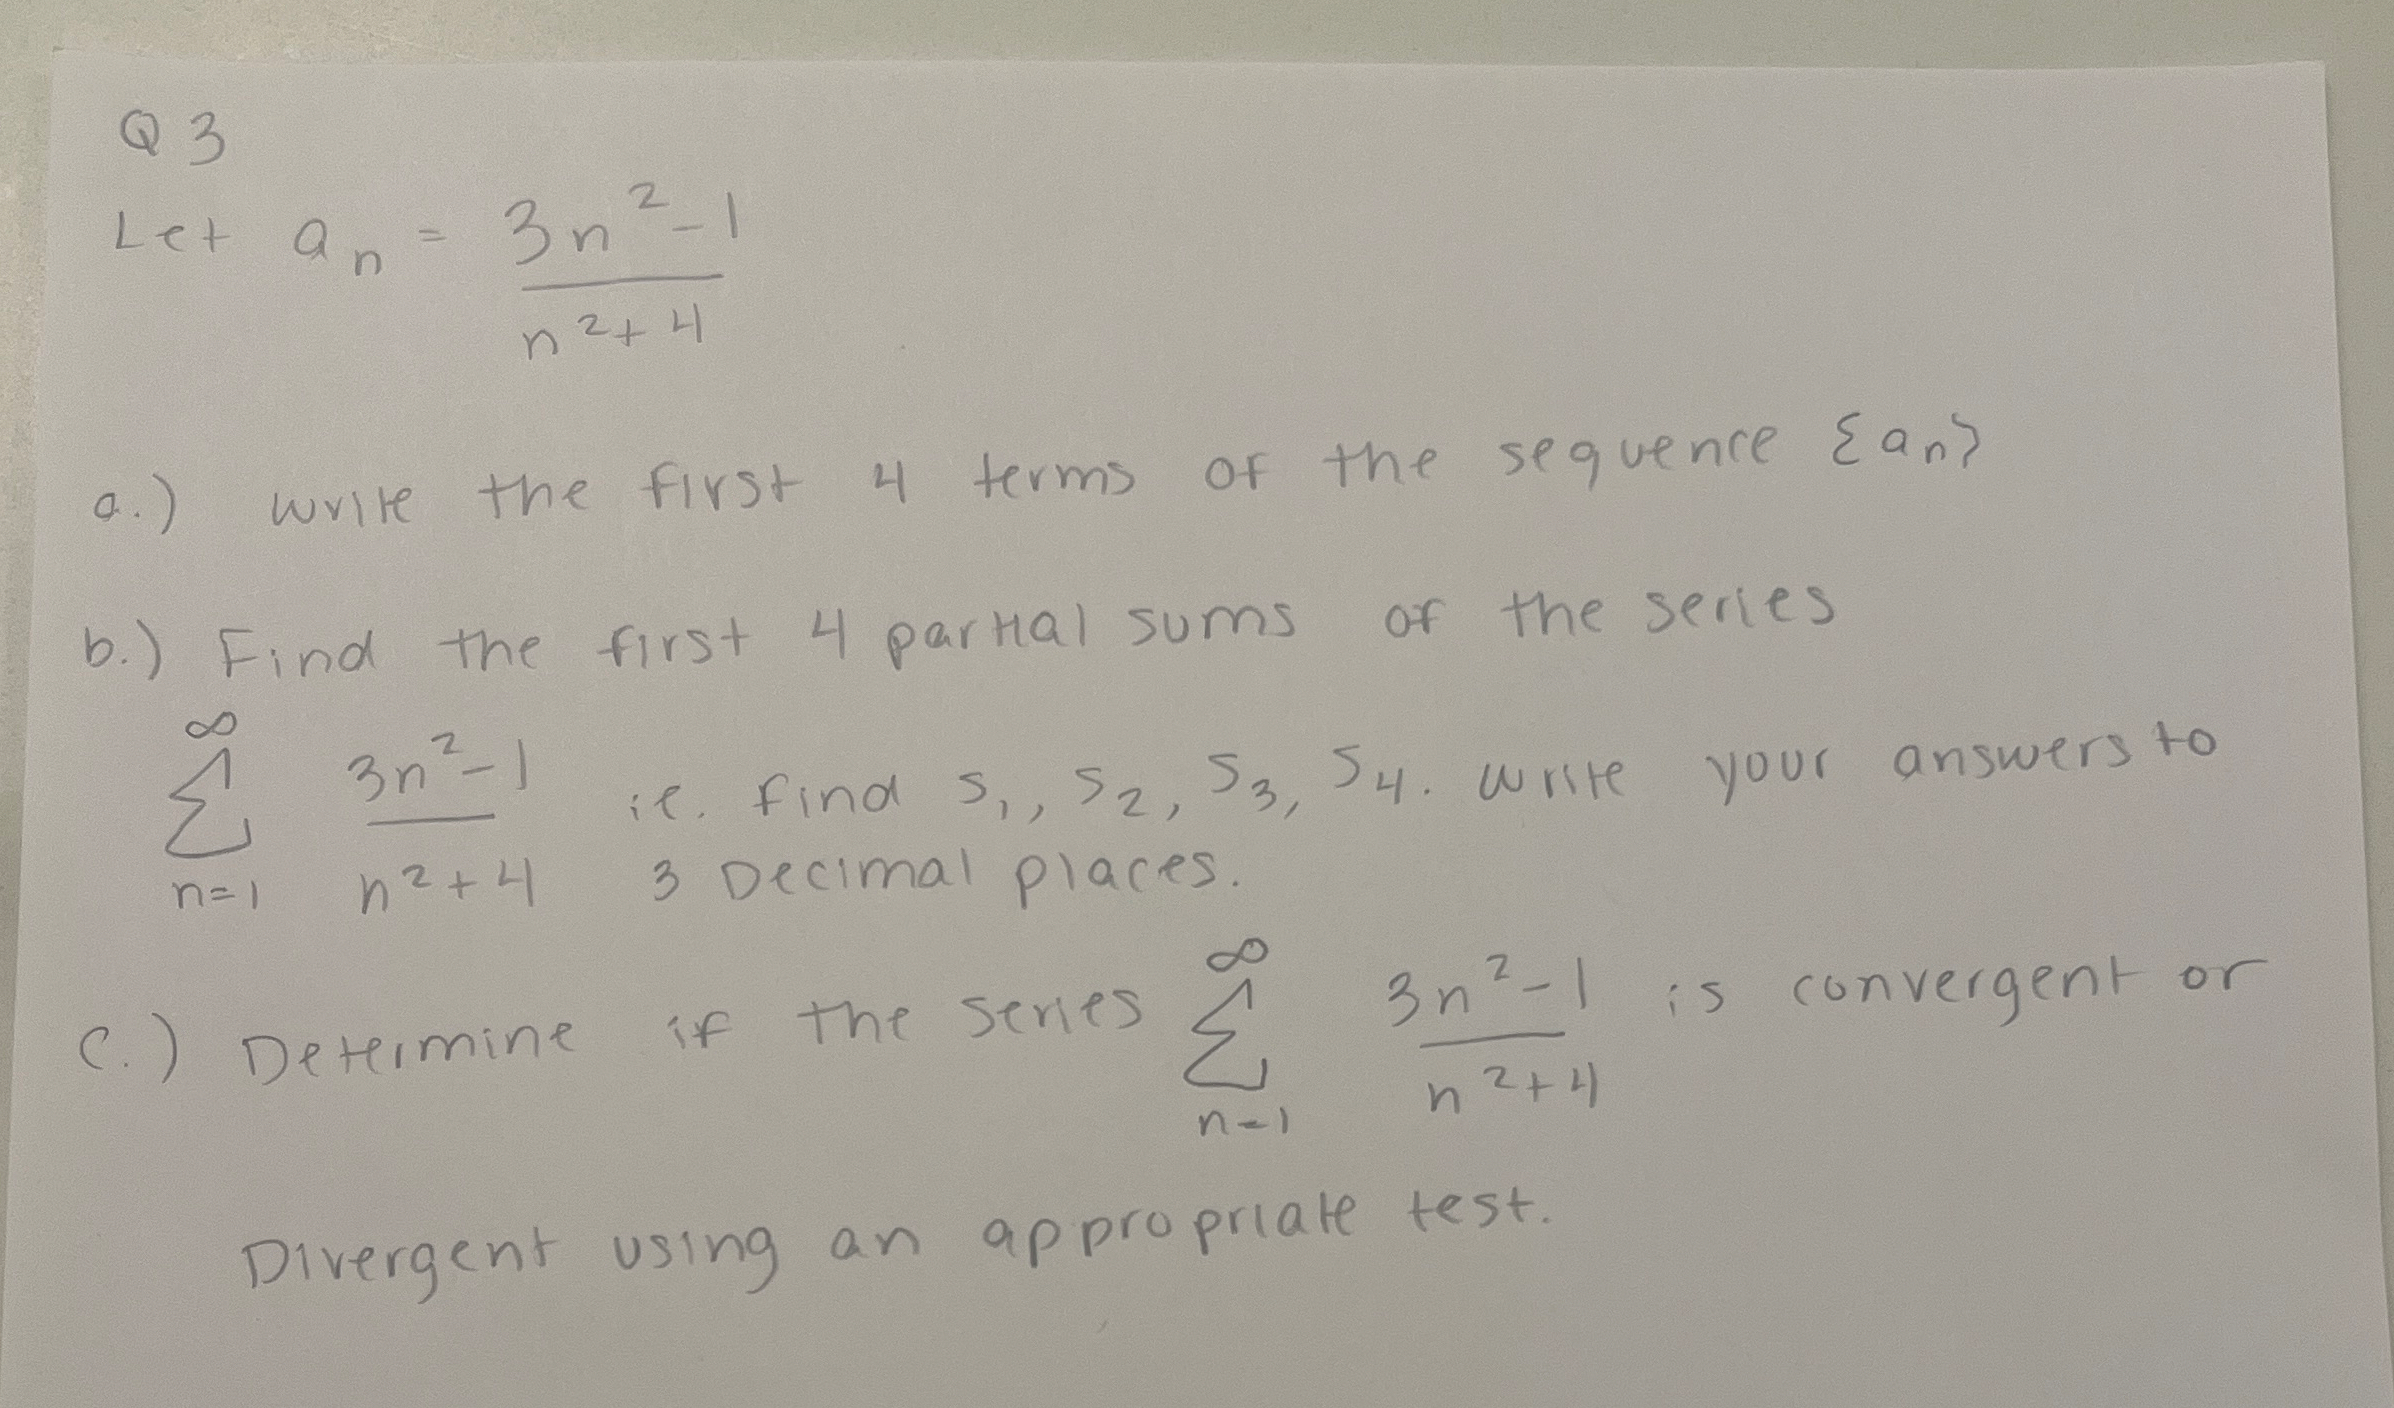 Q3
Let aₙ = (3n²-1)/(n²+4)
a.) write the first 4 terms of the sequence {aₙ}
b.) Find the first 4 partial sums of the series
∞ Σ n=1 (3n²-1)/(n²+4) ie. find s₁, s₂, s₃, s₄. write your answers to
3 Decimal places.
c.) Determine if the series ∞ Σ n=1 (3n²-1)/(n²+4) is convergent or
Divergent using an appropriate test.